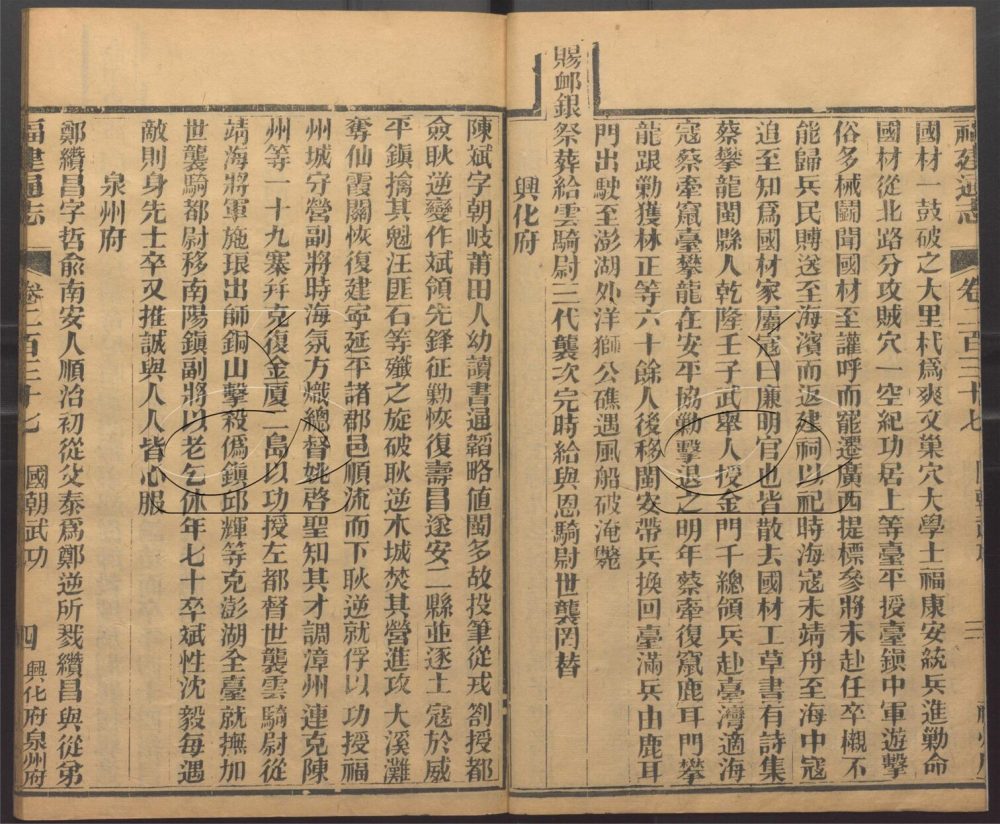 福建通志
卷二百三十七
國材一鼓破之大里杙爲爽文巢穴大學士福康安統兵進勦命
國材從北路分攻賊穴一空紀功居上等臺平授臺鎮中軍遊擊
俗多械鬭聞國材至讙呼而寵遷廣西提標參將未赴任卒櫬不
能歸兵民賻送至海濱而返建祠以祀時海寇未靖舟至海中寇
迫至知爲國材家屬寇曰廉明官也皆散去國材工草書有詩集
蔡攀龍閩縣人乾隆壬子武舉人授金門千總領兵赴臺灣適海
寇蔡牽竄臺攀龍在安平協勦擊退之明年蔡牽復竄鹿耳門攀
龍跟勦獲林正等六十餘人後移閩安帶兵換回臺滿兵由鹿耳
門出駛至澎湖外洋獅公礁遇風船破淹斃
賜䘏銀祭葬給雲騎尉三代襲次完時給與恩騎尉世襲罔替
興化府
陳斌字朝岐莆田人幼讀書通韜略値閩多故投筆從戎劄授都
僉耿逆變作斌領先鋒征勦恢復壽昌遂安二縣並逐土寇於威
平鎮擒其魁汪匪石等殲之旋破耿逆木城焚其營進攻大溪灘
奪仙霞關恢復建寧延平諸郡邑順流而下耿逆就俘以功授福
州城守營副將時海氛方熾總督姚啓聖知其才調漳州連克陳
州等一十九寨幷克復金厦二島以功授左都督世襲雲騎尉從
靖海將軍施琅出師銅山擊殺僞鎮邱輝等克澎湖全臺就撫加
世襲騎都尉移南陽鎮副將以老乞休年七十卒斌性沈毅每遇
敵則身先士卒又推誠與人人皆心服
泉州府
鄭纘昌字哲俞南安人順治初從父泰爲鄭逆所戮纘昌與從弟
福建通志
卷二百三十七
國朝武功
四
興化府泉州府